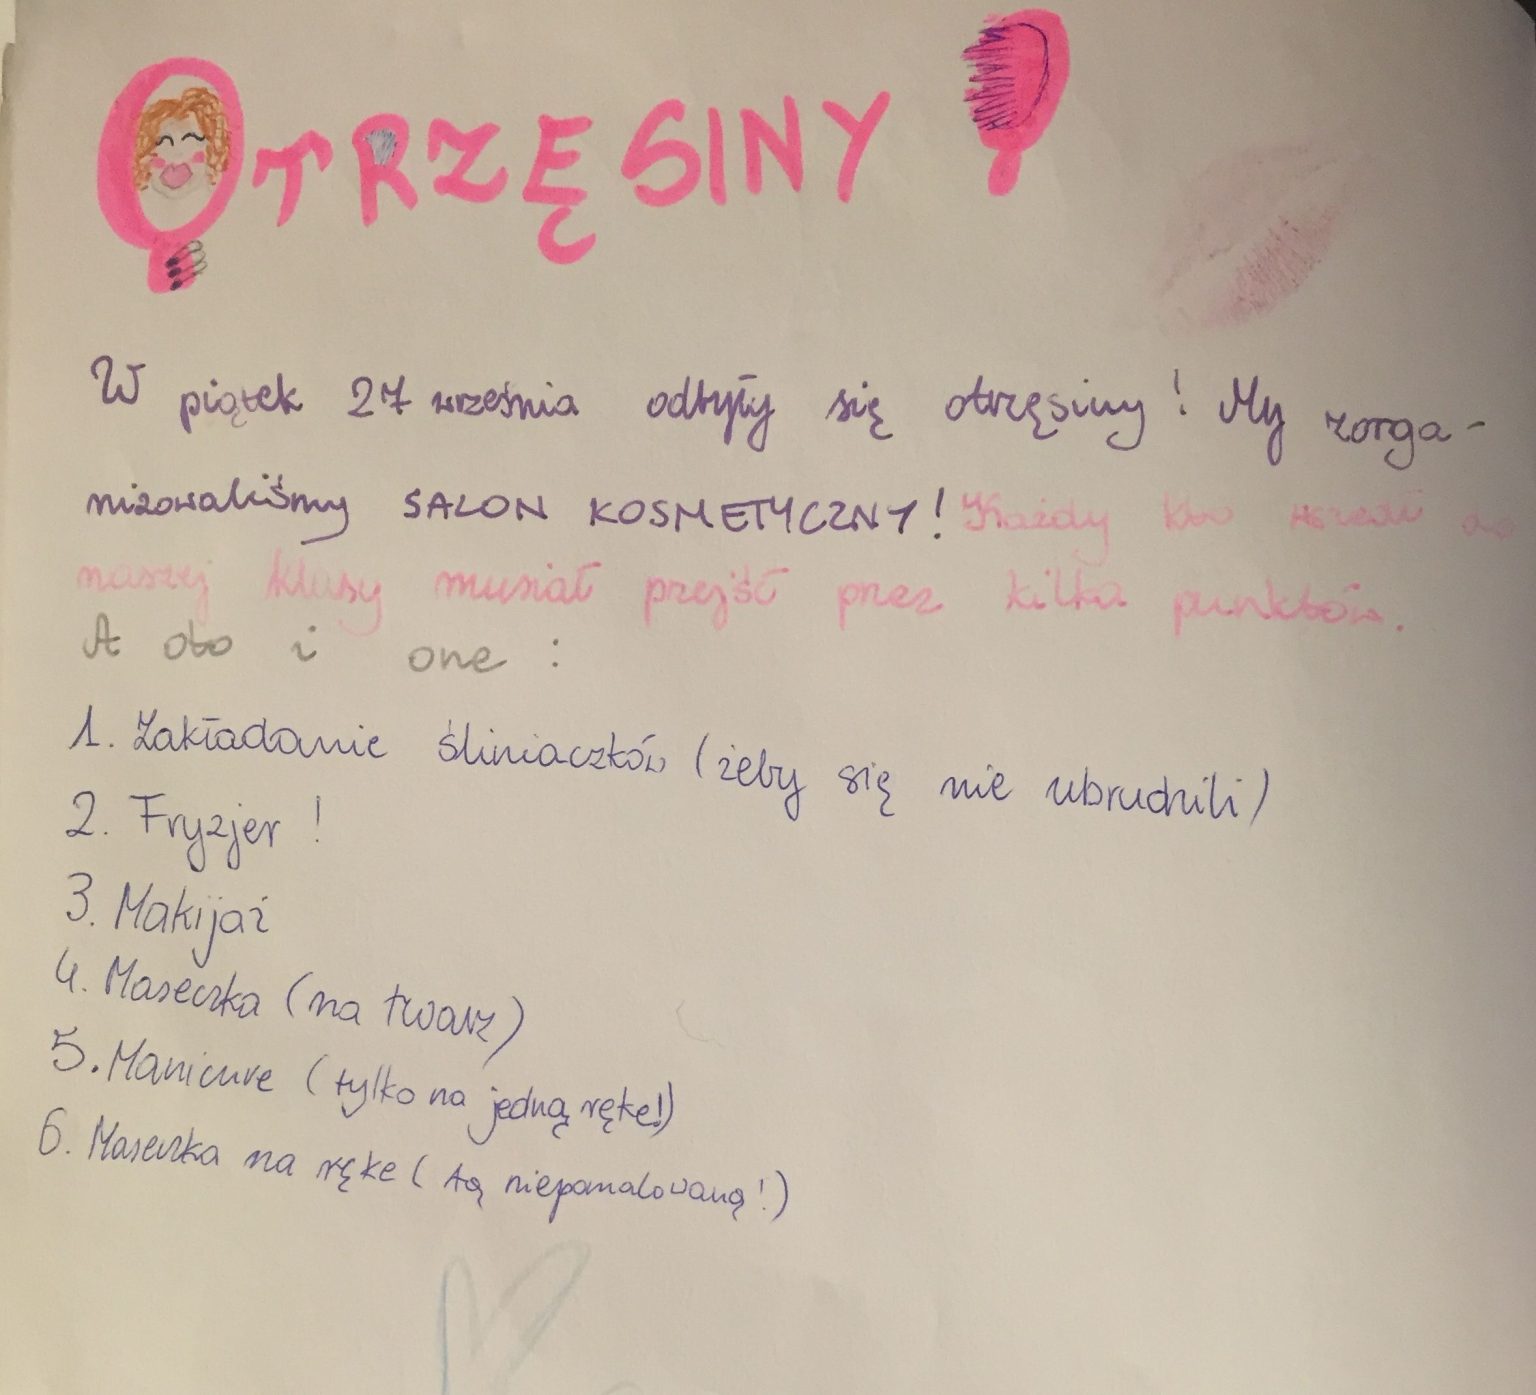 OTRZĘSINY
W piątek 27 września odbyły się otrzęsiny! My zorga-
nizowaliśmy SALON KOSMETYCZNY! Każdy kto wszedł do
naszej klasy musiał przejść przez kilka punktów.
A oto i one:
1. Zakładanie śliniaczków (żeby się nie ubrudzili)
2. Fryzjer!
3. Makijaż
4. Maseczka (na twarz)
5. Manicure (tylko na jedną rękę!)
6. Maseczka na rękę (tą niepomalowaną!)